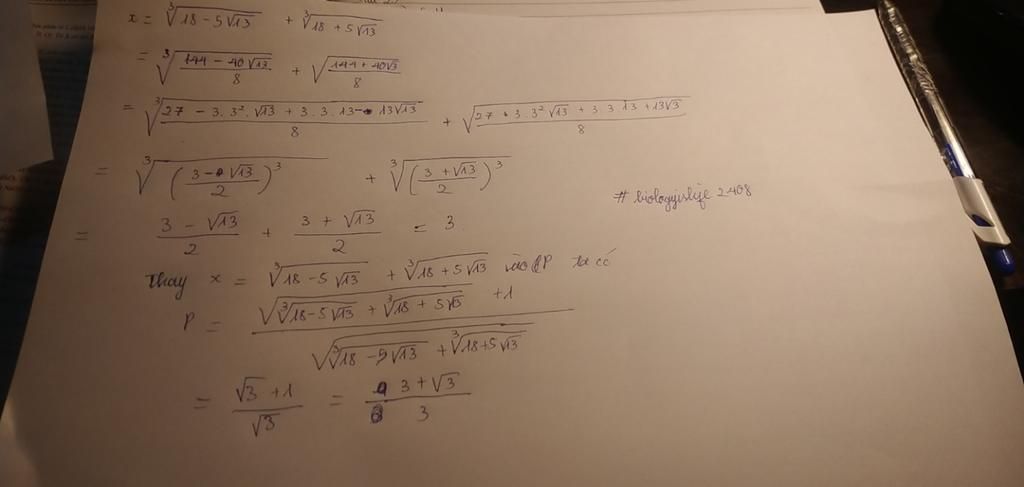 x = ∛(18 - 5√13) + ∛(18 + 5√13)
= ∛((144 - 40√13)/8) + √((144 + 40√3)/8)
= ∛((27 - 3.3².√13 + 3.3.13 - 13√13)/8) + √((27 + 3.3²√13 + 3.3.13 + 13√3)/8)
= ∛(((3 - √13)/2)³) + ∛(((3 + √13)/2)³)
# biologyislife 2408
= (3 - √13)/2 + (3 + √13)/2 = 3.
Thay x = ∛(18 - 5√13) + ∛(18 + 5√13) vào P ta có
P = (√(∛(18 - 5√13) + ∛(18 + 5√3)) + 1)/√(∛(18 - 5√13) + ∛(18 + 5√13))
= (√3 + 1)/√3 = (3 + √3)/3